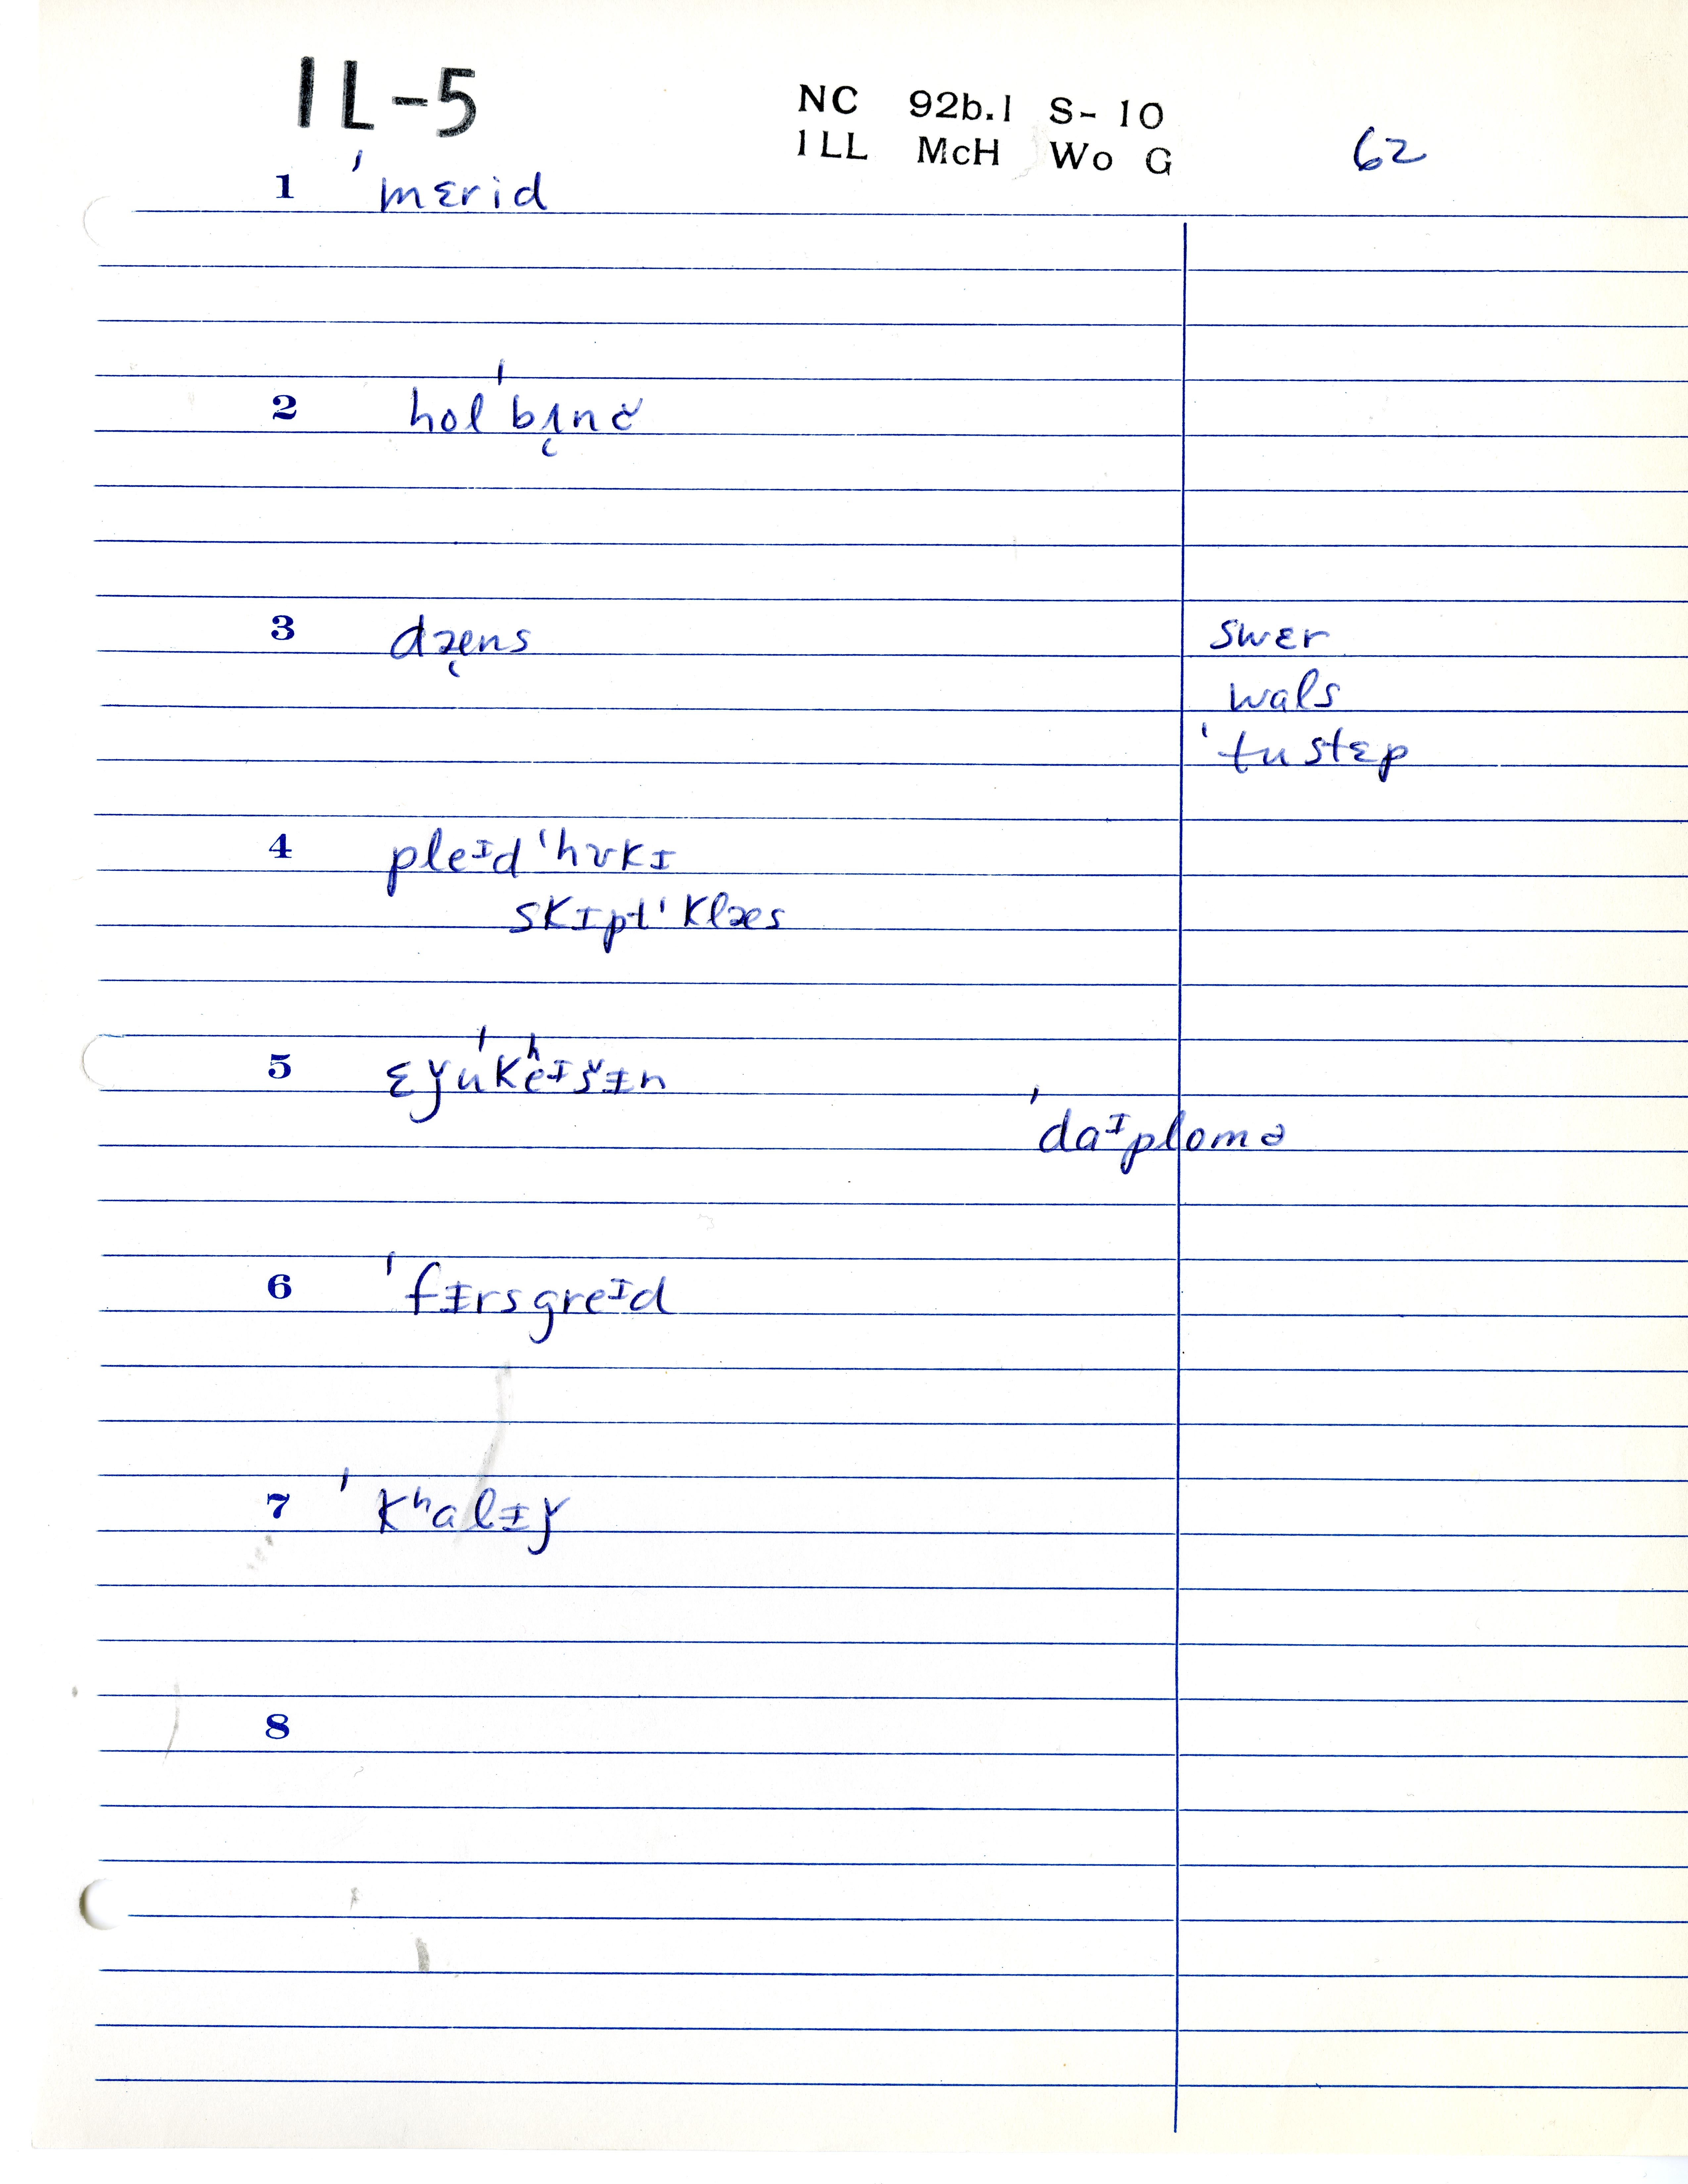 IL-5
NC 92b.1 S- 10
ILL McH Wo G
62
1 ˈmɛrid
2 holˈbʌ̨nč
3 dæ̨ns swɛr
wals
ˈtustɛp
4 pleᶦd ˈhʊkɪ
skɪptˈklæs
5 ɛǰuˈkʰeᶦšɨn
ˈdaᶦplomə
6 ˈfɨrsgreᶦd
7 ˈkʰalɨǰ
8